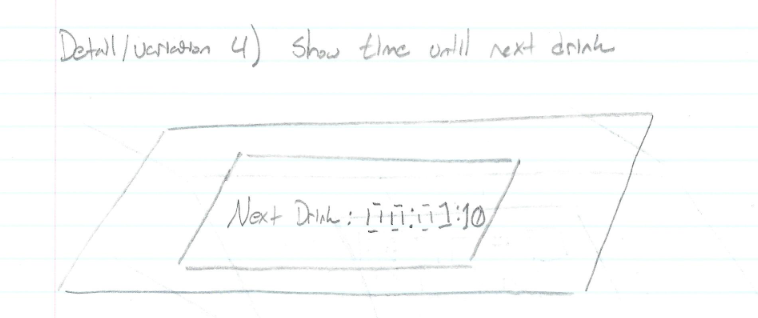 Detail/variation 4) Show time until next drink
Next Drink: 00:01:10